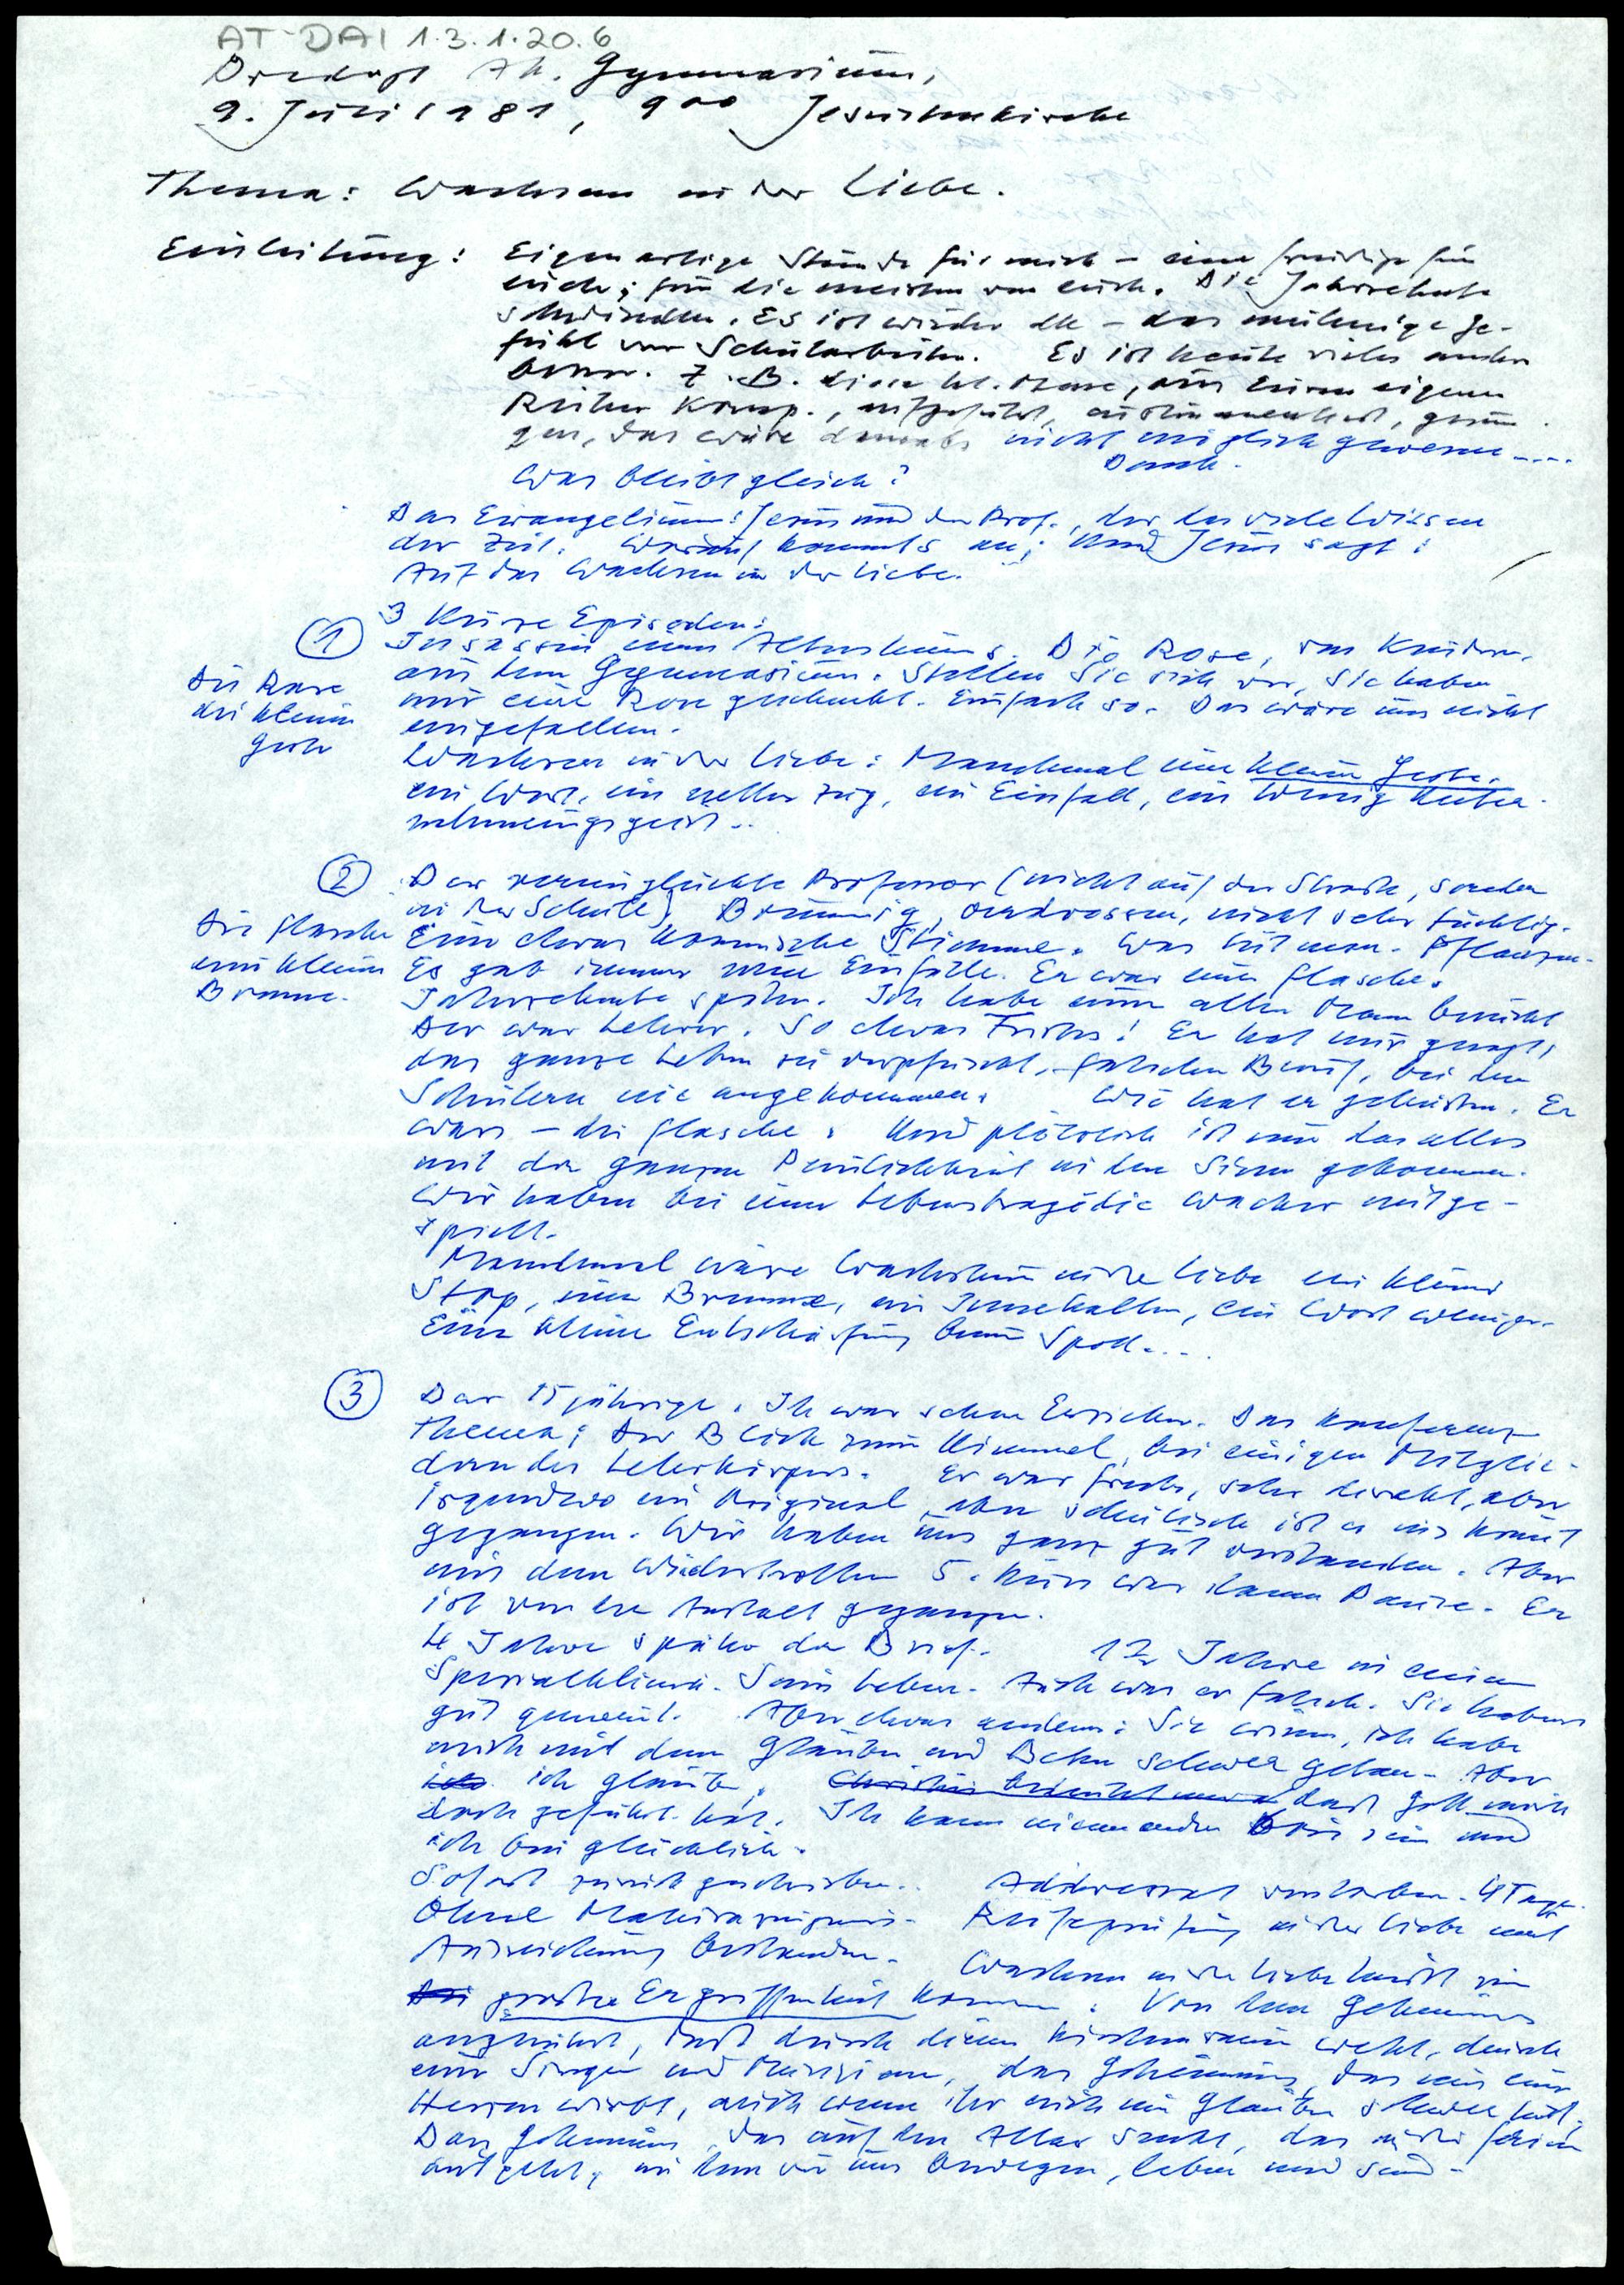 AT-DAI 1.3.1.20.6
Predigt Ak. Gymnasium,
9. Juli 1981, 9⁰⁰ Jesuitenkirche
Thema: Wachsen in der Liebe.
Einleitung: Eigenartige Stunde für mich – eine freudige für
euch; für die meisten von euch. Die Jahrzehnte
schwinden. Es ist wieder da – das mulmige Ge-
fühl vor Schularbeiten. Es ist heute vieles anders
besser. z.B. diese hl. Messe, aus Euren eigenen
Reihen komp., aufgeführt, gesun
gen, das wäre damals nicht möglich gewesen....
Dank.
Was bleibt gleich?
Das Evangelium: Jesus und der Prof., der das viele Wissen
der Zeit. Worauf kommts an; Und Jesus sagt:
Auf das Wachsen in der Liebe.
3 kurze Episoden:
① Insassin eines Altersheims. Die Rose, von Kindern
aus dem Gymnasium. Stellen Sie sich vor, sie haben
mir eine Rose geschenkt. Einfach so. Das wäre uns nicht
eingefallen.
Die Rose
die kleine
Geste
Wachsen in der Liebe: Manchmal eine kleine Geste.
ein Wort, ein netter Zug, ein Einfall, ein wenig Unter-
nehmungsgeist..
② Der verunglückte Professor (nicht auf der Straße, sondern
in der Schule). Brummig, verdrossen, nicht sehr tüchtig.
Eine etwas komische Stimme. Was tut man. Pflanzen.
Die Flasche
eine kleine
Bremse.
Es gab immer neue Einfälle. Er war eine Flasche.
Jahrzehnte später. Ich habe einen alten Mann besucht
Der war Lehrer. So etwas Tristes! Er hat mir gesagt,
das ganze Leben sei verpfuscht, falschen Beruf, bei den
Schülern nie angekommen. Wie hat er geheißen. Er
wars – die Flasche. Und plötzlich ist mir das alles
mit der ganzen Peinlichkeit in den Sinn gekommen.
Wir haben bei einer Lebenstragödie wacker mitge-
spielt.
Manchmal wäre Wachstum in der Liebe ein kleines
Stop, eine Bremse, ein Innehalten, ein Wort weniger.
Eine kleine Entschärfung beim Spott...
③ Der 15jährige. Ich war schon Erzieher. Das Konferenz
thema; Der Blick zum Himmel bei einigen Mitglie-
dern des Lehrkörpers. Er war frech, sehr direkt, aber
irgendwo ein Original, aber schulisch ist es ins Kraut
gegangen. Wir haben uns ganz gut verstanden. Aber
mit dem wiederholten 5. Kurs war dann Pause. Er
ist von der Anstalt gegangen.
4 Jahre später der Brief. 1½ Jahre in einer
Spezialklinik. Sein Leben. Auch war er falsch. Sie habens
gut gemeint. Aber etwas anderes: Sie wissen, ich habe
mich mit dem Glauben und Beten schwer getan. Aber
ich glaube, dass Gott mich
doch geführt hat. Ich kann niemandem Bös sein und
ich bin glücklich.
Sofort zurückgeschrieben.. Addressat verstorben. 4 Tage.
Ohne Maturazeugnis. Reifeprüfung in der Liebe mit
Auszeichnung bestanden. Wachsen in der Liebe heißt in
große Ergriffenheit kommen. Von dem Geheimnis
angerührt, das durch diesen Kirchenraum weht, durch
euer Singen und Musizieren, das Geheimnis, das um eure
Herzen wirbt, auch wenn ihr euch im Glauben schwer tut.
Das Geheimnis, das auf den Altar sinkt, das in die Ferien
mitgeht, in dem wir uns bewegen, leben und sind.